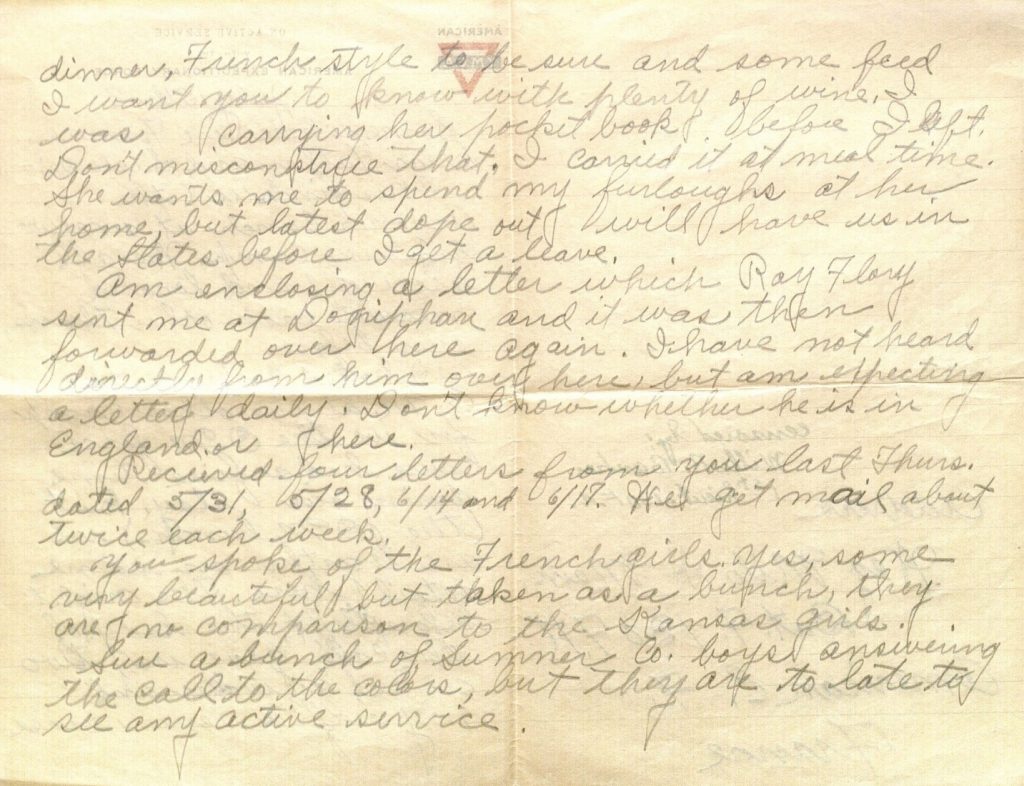 dinner, French style to be sure and some feed
I want you to know with plenty of wine. I
was carrying her pocket book before I left.
Don't misconstrue that. I carried it at meal time.
She wants me to spend my furloughs at her
home, but latest dope out will have us in
the States before I get a leave.
Am enclosing a letter which Ray Flory
sent me at Doniphan and it was then
forwarded over here again. I have not heard
directly from him over here, but am expecting
a letter daily. Don't know whether he is in
England or here.
Received four letters from you last Thurs.
dated 5/31, 5/28, 6/14 and 6/17. We get mail about
twice each week.
You spoke of the French girls. Yes, some
very beautiful but taken as a bunch, they
are no comparison to the Kansas girls.
Sure a bunch of Sumner Co. boys answering
the call to the colors, but they are to late to
see any active service.